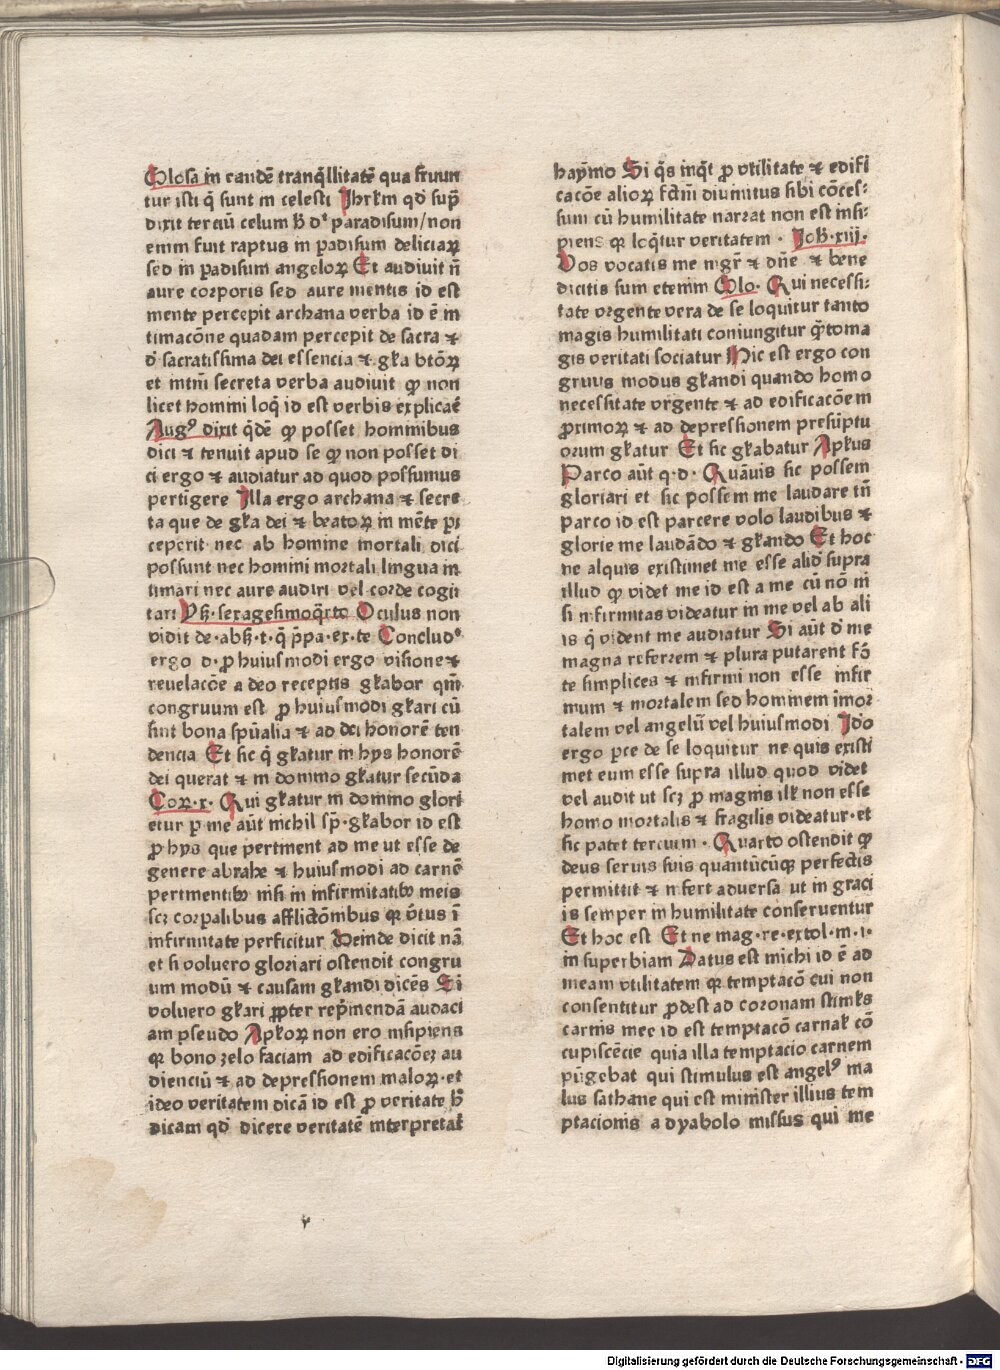 Glosa in eandē tranq̄llitatē qua fruun
tur isti q̄ sunt in celesti Jhrl̄m qd̄ sup̄
dixit terciū celum h̄ dʳ paradisum/non
enim fuit raptus in p̄adisum deliciaꝝ
sed in p̄adisum angeloꝝ Et audiuit n̄
aure corporis sed aure mentis id est
mente percepit archana verba id ē in
timacōne quadam percepit de sacra ⁊
d̄ sacratissima dei essencia ⁊ gl̄a btōꝝ
et mtm̄ secreta verba audiuit qꝫ non
licet homini loq̄ id est verbis explicaē
Augꝰ dixit q̄dē qꝫ posset hominibus
dici ⁊ tenuit apud se qꝫ non posset di
ci ergo ⁊ audiatur ad quod possumus
pertigere Illa ergo archana ⁊ secre
ta que de gl̄a dei ⁊ beatoꝝ in mēte pꝛ
ceperit nec ab homine mortali dici
possunt nec homini mortali lingua in
timari nec aure audiri vel corde cogi
tari Vn̄·sexagesimoq̄rto Oculus non
vidit de·abh̄·t·q̄ p̄pa·ex·te Concludᵉ
ergo d·ꝓ huiusmodi ergo visione ⁊
reuelacōe a deo receptis gl̄abor qm̄
congruum est ꝓ huiusmodi gl̄ari cū
sint bona spūalia ⁊ ad dei honorē ten
dencia Et sic q̄ gl̄atur in hys honorē
dei querat ⁊ in domino gl̄atur secūda
Coꝝ·x· Qui gl̄atur in domino glori
etur ꝑ me aūt nichil sp̄·gl̄abor id est
ꝓ hys que pertinent ad me ut esse de
genere abrahe ⁊ huiusmodi ad carnē
pertinentibꝫ nisi in infirmitatibꝫ meis
scꝫ corpalibus afflictōnibus qꝛ v̄tus ī
infirmitate perficitur Deinde dicit nā
et si voluero gloriari ostendit congru
um modū ⁊ causam gl̄andi dicēs Si
voluero gl̄ari ꝓpter rep̄mendā audaci
am pseudo Apl̄oꝝ non ero insipiens
qꝛ bono zelo faciam ad edificacōeꝫ au
dienciū ⁊ ad depressionem maloꝝ·et
ideo veritatem dicā id est ꝓ veritate h̄
dicam qd̄ dicere veritatē interpretat̄
haymo Si q̄s inq̄t ꝓ vtilitate ⁊ edifi
cacōe alioꝝ fctm̄ diuinitus sibi cōces⸗
sum cū humilitate narrat non est insi⸗
piens qꝛ loq̄tur veritatem · Joh̄·xiij·
Vos vocatis me mgr̄ ⁊ dn̄e ⁊ bene
dicitis sum etenim Glo· Qui necessi⸗
tate vrgente vera de se loquitur tanto
magis humilitati coniungitur q̄toma
gis veritati sociatur Hic est ergo con
gruus modus gl̄andi quando homo
necessitate vrgente ⁊ ad edificacōem
ꝓximoꝝ ⁊ ad depressionem presūptu
orum gl̄atur Et sic gl̄abatur Apl̄us
Parco aūt q·d· Quāuis sic possem
gloriari et sic possem me laudare tn̄
parco id est parcere volo laudibus ⁊
glorie me laudādo ⁊ gl̄ando Et hoc
ne aliquis existimet me esse aliq̄d supra
illud qꝫ videt me id est a me cū nō m̄
si infirmitas videatur in me vel ab ali
is q̄ vident me audiatur Si aūt d̄ me
magna referrem ⁊ plura putarent fō
te simplices ⁊ infirmi non esse infir
mum ⁊ mortalem sed hominem īmor
talem vel angelū vel huiusmodi Jdō
ergo ꝑce de se loquitur ne quis existi
met eum esse supra illud quod videt
vel audit ut scꝫ ꝓ magnis ill̄ non esse
homo mortalis ⁊ fragilis videatur·et
sic patet tercium · Quarto ostendit qꝫ
deus seruis suis quantūcūqꝫ perfectis
permittit ⁊ infert aduersa ut in graci
is semper in humilitate conseruentur
Et hoc est Et ne mag·re·extol·m·i·
in superbiam Datus est michi id ē ad
meam vtilitatem qꝛ temptacō cui non
consentitur ꝓdest ad coronam stiml̄s
carnis mee id est temptacō carnal̄ cō
cupiscēcie quia illa temptacio carnem
pūgebat qui stimulus est angelꝰ ma
lus sathane qui est minister illius tem
ptacionis a dyabolo missus qui me
Digitalisierung gefördert durch die Deutsche Forschungsgemeinschaft · DFG